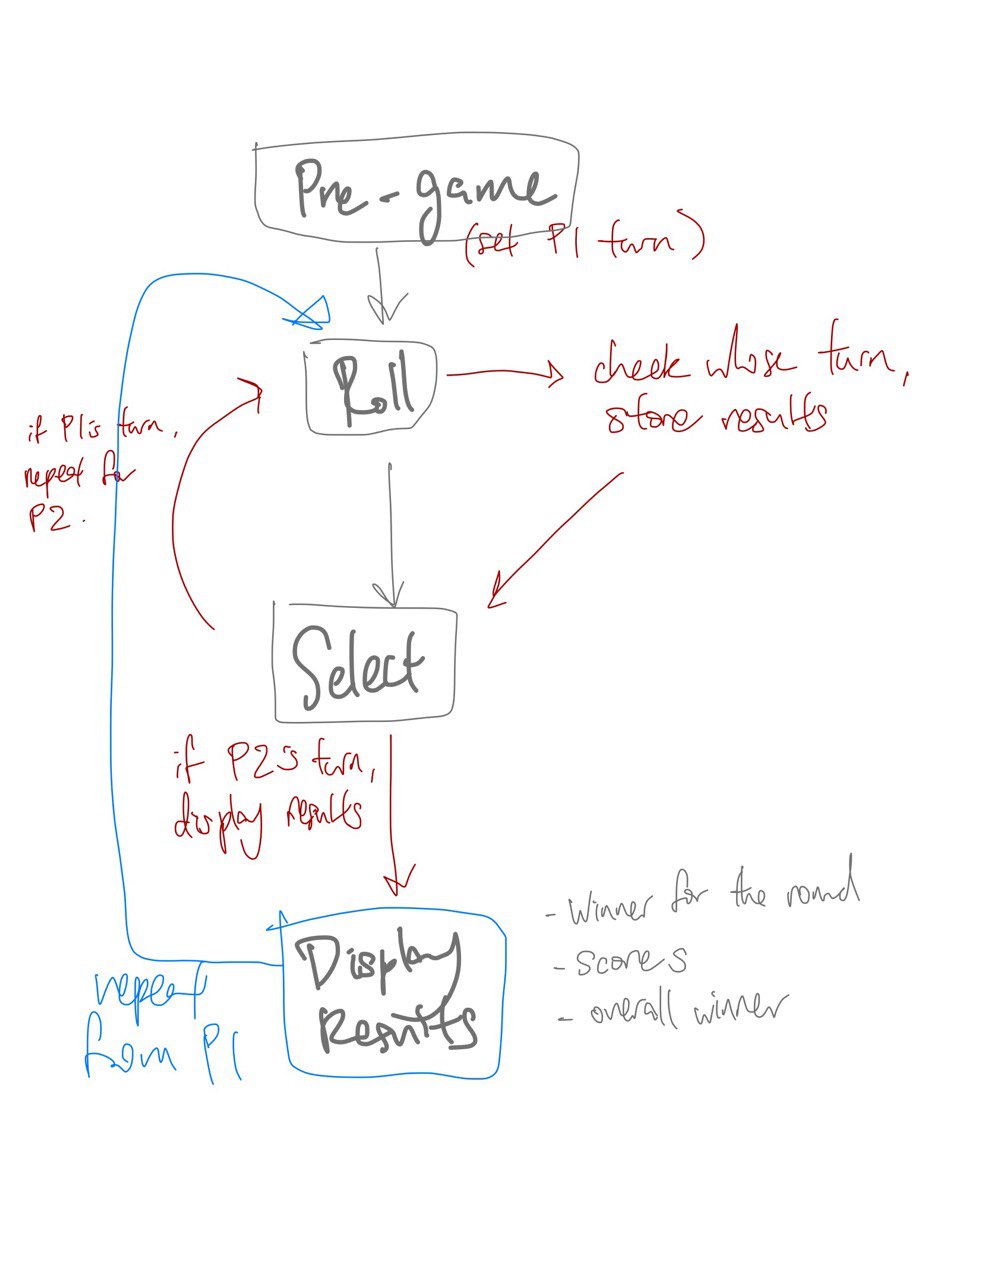 Pre-game
(set P1 turn)
Roll
check whose turn,
store results
if P1's turn,
repeat for
P2.
Select
if P2's turn,
display results
Display
Results
- Winner for the round
- scores
- overall winner
repeat
from P1